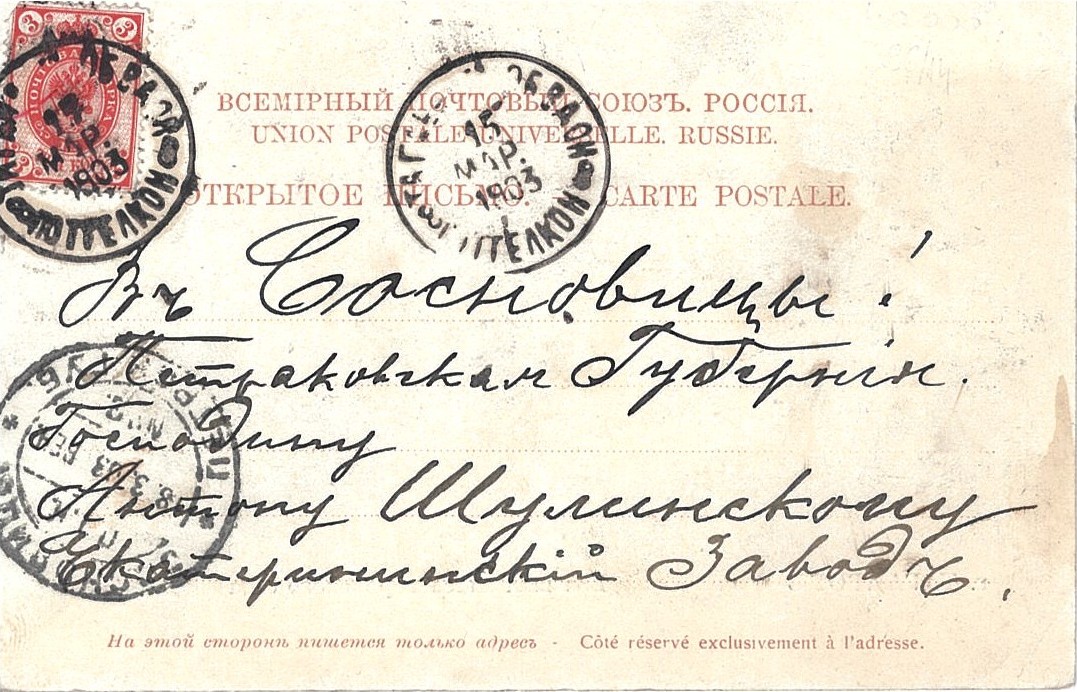 ВСЕМІРНЫЙ ПОЧТОВЫЙ СОЮЗЪ. РОССІЯ.
UNION POSTALE UNIVERSELLE. RUSSIE.
ОТКРЫТОЕ ПИСЬМО. CARTE POSTALE.
15
МАР.
1903
15
МАР.
1903
Въ Сосновицы!
Петраковская Губернія.
Господину
Антону Шулинскому
Екатерининскій Заводъ,
На этой сторонѣ пишется только адресъ - Côté réservé exclusivement à l'adresse.